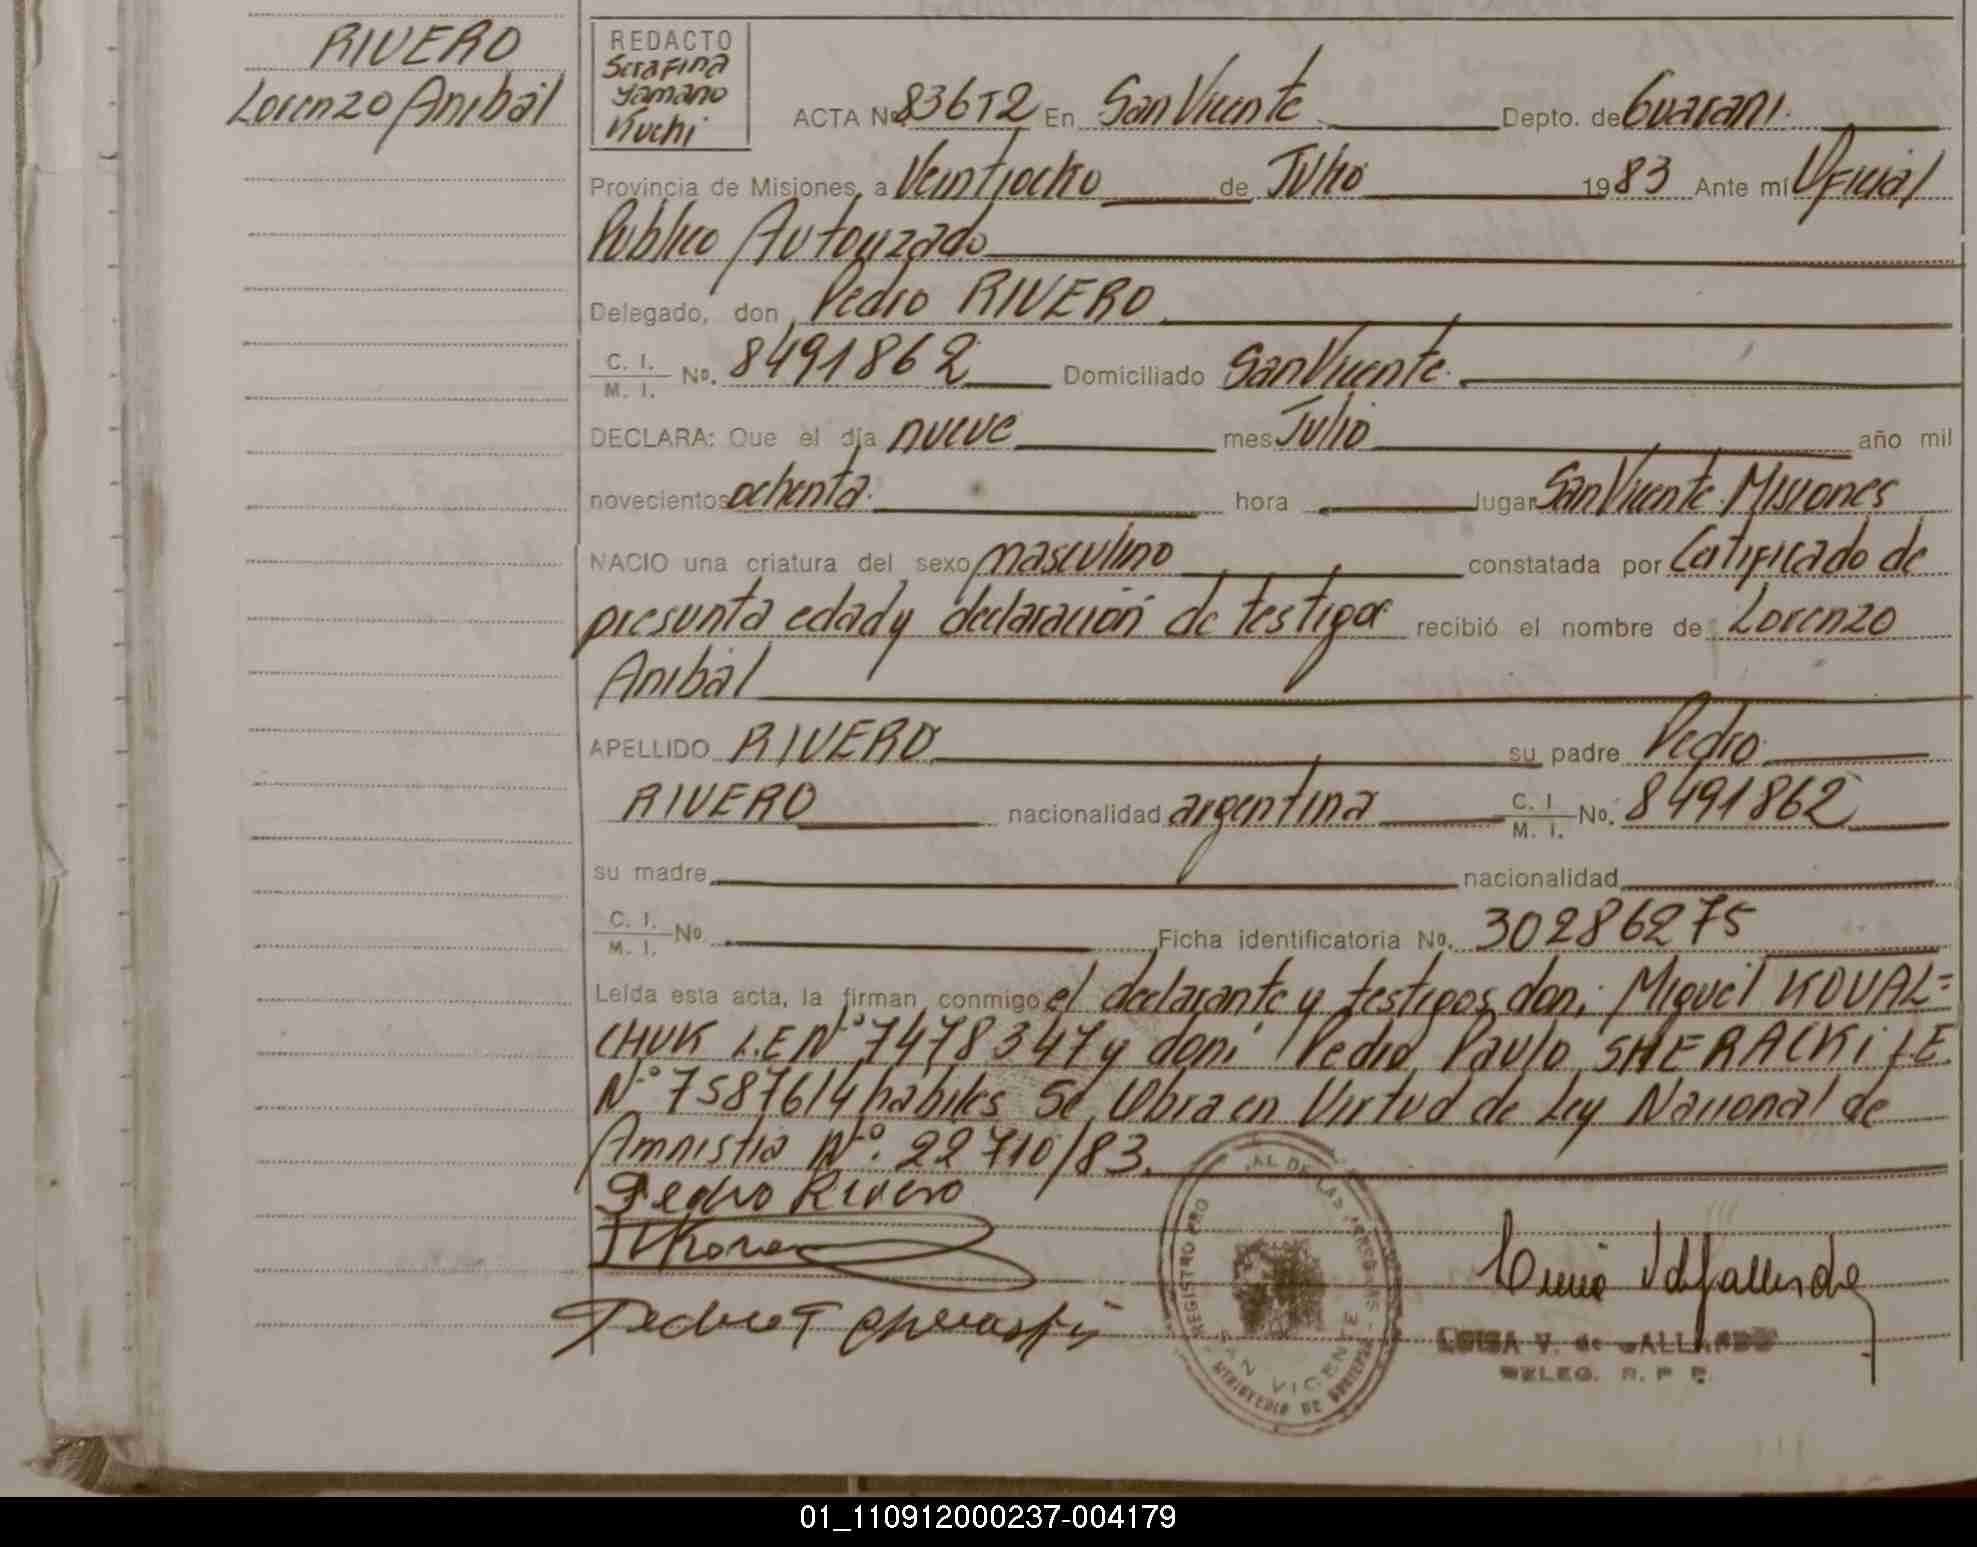 RIVERO
Lorenzo Aníbal
REDACTO
Serafina
Yamano
Kuchi
ACTA No 836T2 En San Vicente Depto. de Guaraní.
Provincia de Misiones, a Veintiocho de Julio 1983 Ante mí Oficial
Público Autorizado
Delegado, don Pedro RIVERO
C. I. / M. I. No. 8491862 Domiciliado San Vicente.
DECLARA: Que el día nueve mes Julio año mil
novecientos ochenta. hora lugar San Vicente. Misiones
NACIO una criatura del sexo masculino constatada por Cetificado de
presunta edad y declaración de testigos recibió el nombre de Lorenzo
Aníbal
APELLIDO RIVERO su padre Pedro
RIVERO nacionalidad argentina C. I. / M. I. No. 8491862
su madre nacionalidad
C. I. / M. I. No. Ficha identificatoria No. 30286275
Leída esta acta, la firman conmigo el declarante y testigos don: Miguel KOVAL=
CHUK L.E Nº 7478347 y don: Pedro Paulo SHERACKi L.E.
N.º 7587614 habiles Se Obra en Virtud de Ley Nacional de
Amnistía N.º. 22710/83.
Pedro Rivero
REGISTRO PRO AL DE LAS PERSONAS
SAN VICENTE
LUISA V. de GALLARDO
DELEG. R. P. P.
01_110912000237-004179